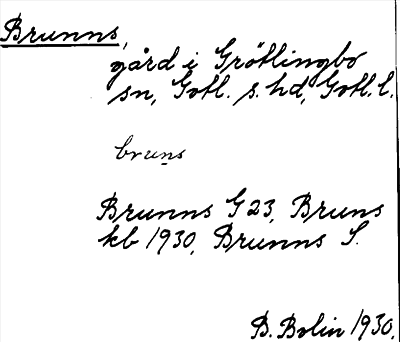 Brunns,
gård i Grötlingbo
sn, Gotl. s. hd, Gotl. l.
bruns
Brunns G 23, Bruns
kb 1930, Brunns S.
B. Bolin 1930.